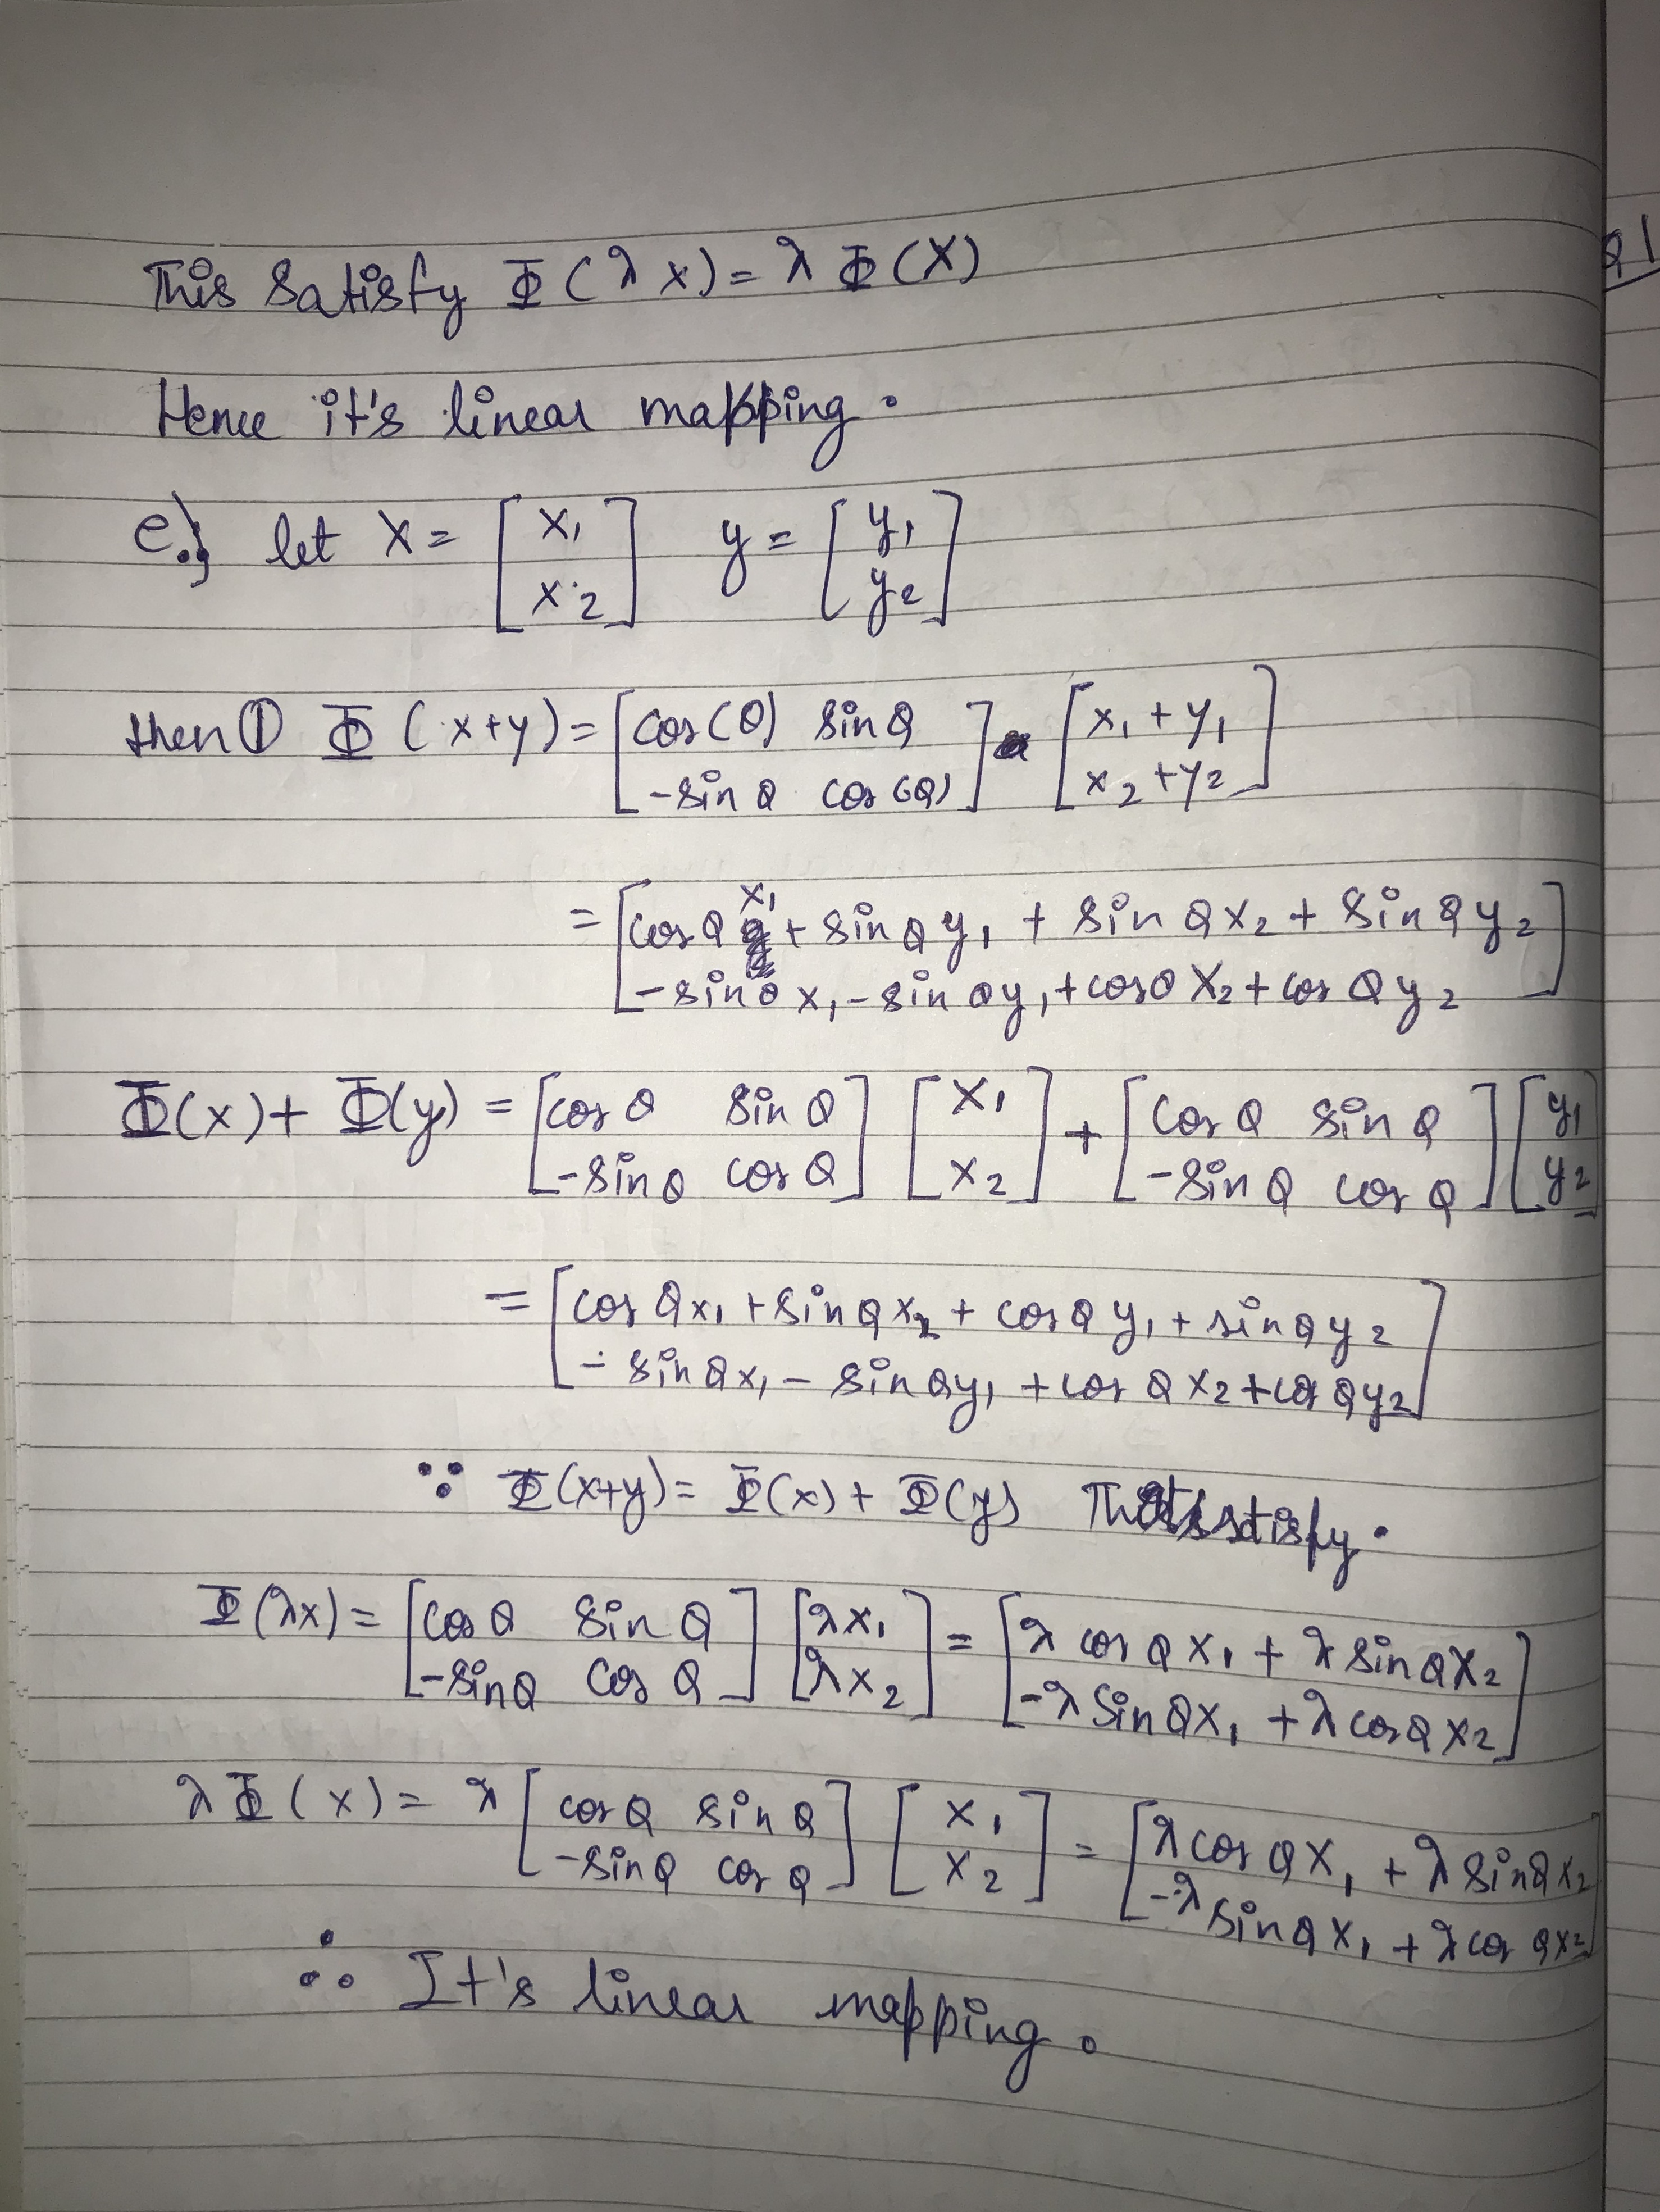 This satisfy Φ(λx) = λ Φ(X)
Q1
Hence it's linear mapping.
e.) let X = [x₁ x₂] y = [y₁ y₂]
then ① Φ(x+y) = [cos(θ) sinθ -sinθ cos(θ)] [x₁+y₁ x₂+y₂]
= [cosθ x₁ + sinθ y₁ + sinθ x₂ + sinθ y₂ -sinθ x₁ - sinθ y₁ + cosθ X₂ + cosθ y₂]
Φ(x) + Φ(y) = [cosθ sinθ -sinθ cosθ] [x₁ x₂] + [cosθ sinθ -sinθ cosθ] [y₁ y₂]
= [cosθ x₁ + sinθ x₂ + cosθ y₁ + sinθ y₂ -sinθ x₁ - sinθ y₁ + cosθ x₂ + cosθ y₂]
∵ Φ(x+y) = Φ(x) + Φ(y) satisfy.
Φ(λx) = [cosθ sinθ -sinθ cosθ] [λx₁ λx₂] = [λ cosθ x₁ + λ sinθ x₂ -λ sinθ x₁ + λ cosθ x₂]
λ Φ(x) = λ [cosθ sinθ -sinθ cosθ] [x₁ x₂] = [λ cosθ x₁ + λ sinθ x₂ -λ sinθ x₁ + λ cosθ x₂]
∴ It's linear mapping.